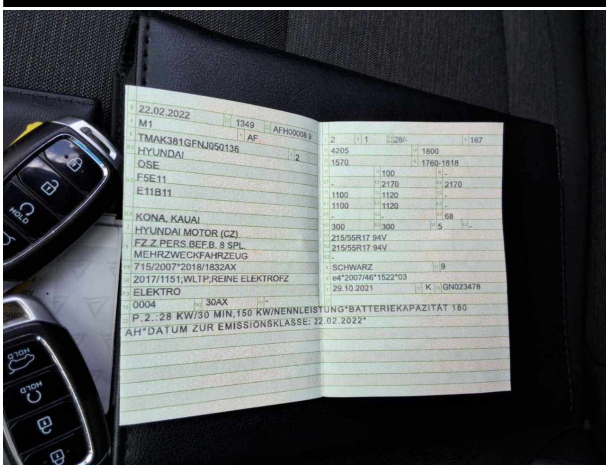 22.02.2022 1349 AFH00008 9
M1 AF
TMAK381GFNJ050136 2
HYUNDAI
OSE
F5E11
E11B11
KONA, KAUAI
HYUNDAI MOTOR (CZ)
FZ.Z.PERS.BEF.B. 8 SPL.
MEHRZWECKFAHRZEUG
715/2007*2018/1832AX
2017/1151;WLTP;REINE ELEKTROFZ
ELEKTRO
0004 30AX -
P.2.:28 KW/30 MIN,150 KW/NENNLEISTUNG*BATTERIEKAPAZITÄT 180
AH*DATUM ZUR EMISSIONSKLASSE: 22.02.2022*
2 1 28/- 167
4205 1800
1570 1760-1818
100 -
- 2170 2170
1100 1120 -
1100 1120 -
- - 68
300 300 5 -
215/55R17 94V
215/55R17 94V
-
SCHWARZ 9
e4*2007/46*1522*03
29.10.2021 K GN023478
HOLD
HOLD
HOLD